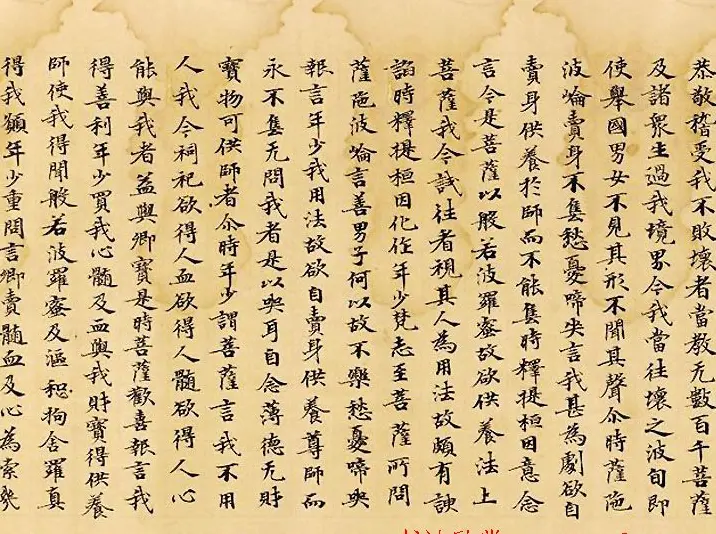 恭敬稽受我不敗壞者當教无數百千菩薩
及諸衆生過我境界今我當往壞之波旬即
使舉國男女不見其形不聞其聲尒時薩陁
波崘賣身不售愁憂啼哭言我甚為劇欲自
賣身供養於師而不能售時釋提桓因意念
言今是菩薩以般若波羅蜜故欲供養法上
菩薩我今試往者視其人為用法故頗有諛
諂時釋提桓因化作年少梵志至菩薩所問
薩陁波崘言善男子何以故不樂愁憂啼哭
報言年少我用法故欲自賣身供養尊師而
永不售无問我者是以哭耳自念薄德无財
寶物可供師者尒時年少謂菩薩言我不用
人我今祠祀欲得人血欲得人髓欲得人心
能與我者益與卿寶是時菩薩歡喜報言我
得善利年少買我心髓及血與我財寶得供養
師使我得聞般若波羅蜜及漚惒拘舍羅真
得我願年少重問言卿賣髓血及心為索幾